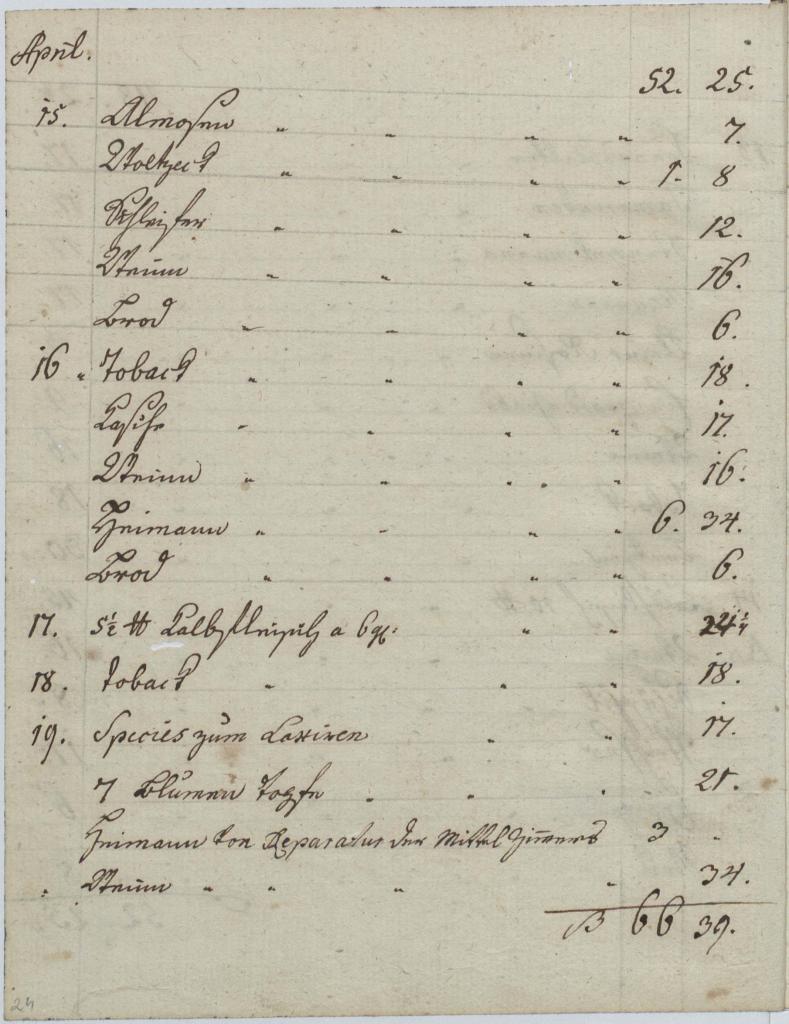 April.
52. 25.
15. Almosen " " " " 7.
" " " " 1. 8
Schleifer " " " " 12.
Wein " " " " 16.
Brod " " " " 6.
16 " Toback " " " " 18.
" " " " 17.
Wein " " " " 16.
Heimann " " " " 6. 34.
Brod " " " " 6.
17. 5½ ℔ Kalbfleisch a 6 " " 24¼
18. Toback " " " 18.
19. Species zum Laxiren " " 17.
7 Blumen Topfe " " " 21.
Heimann von Reparatur der Mittel Zimmers 3 "
" Wein " " " " 34.
66 39.
24